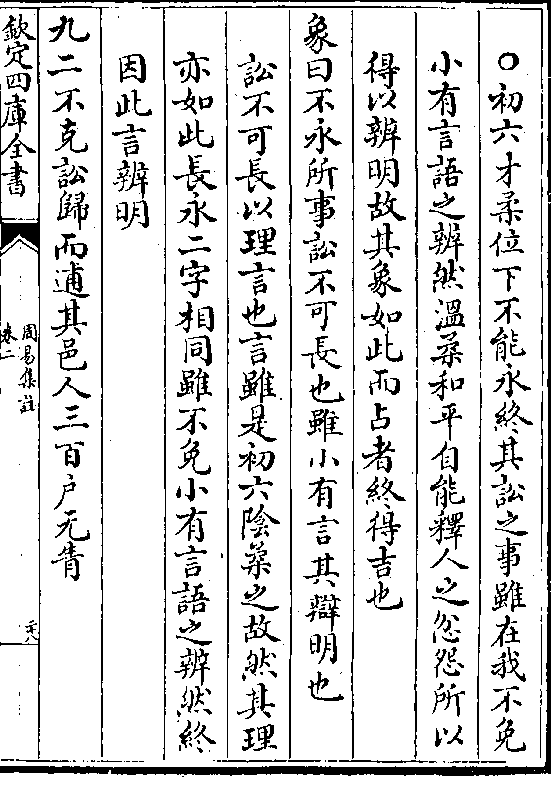 〇初六才柔位下不能永終其訟之事雖在我不免
小有言語之辨然溫柔和平自能釋人之忿怨所以
得以辨明故其象如此而占者終得吉也
象曰不永所事訟不可長也雖小有言其辯明也
訟不可長以理言也言雖是初六陰柔之故然其理
亦如此長永二字相同雖不免小有言語之辨然終
因此言辨明
九二不克訟歸而逋其邑人三百户无眚
欽定四庫全書
周易集註
卷二